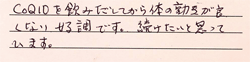 CoQ10を飲みだしてから体の動きが良
くなり好調です。続けたいと思って
います。